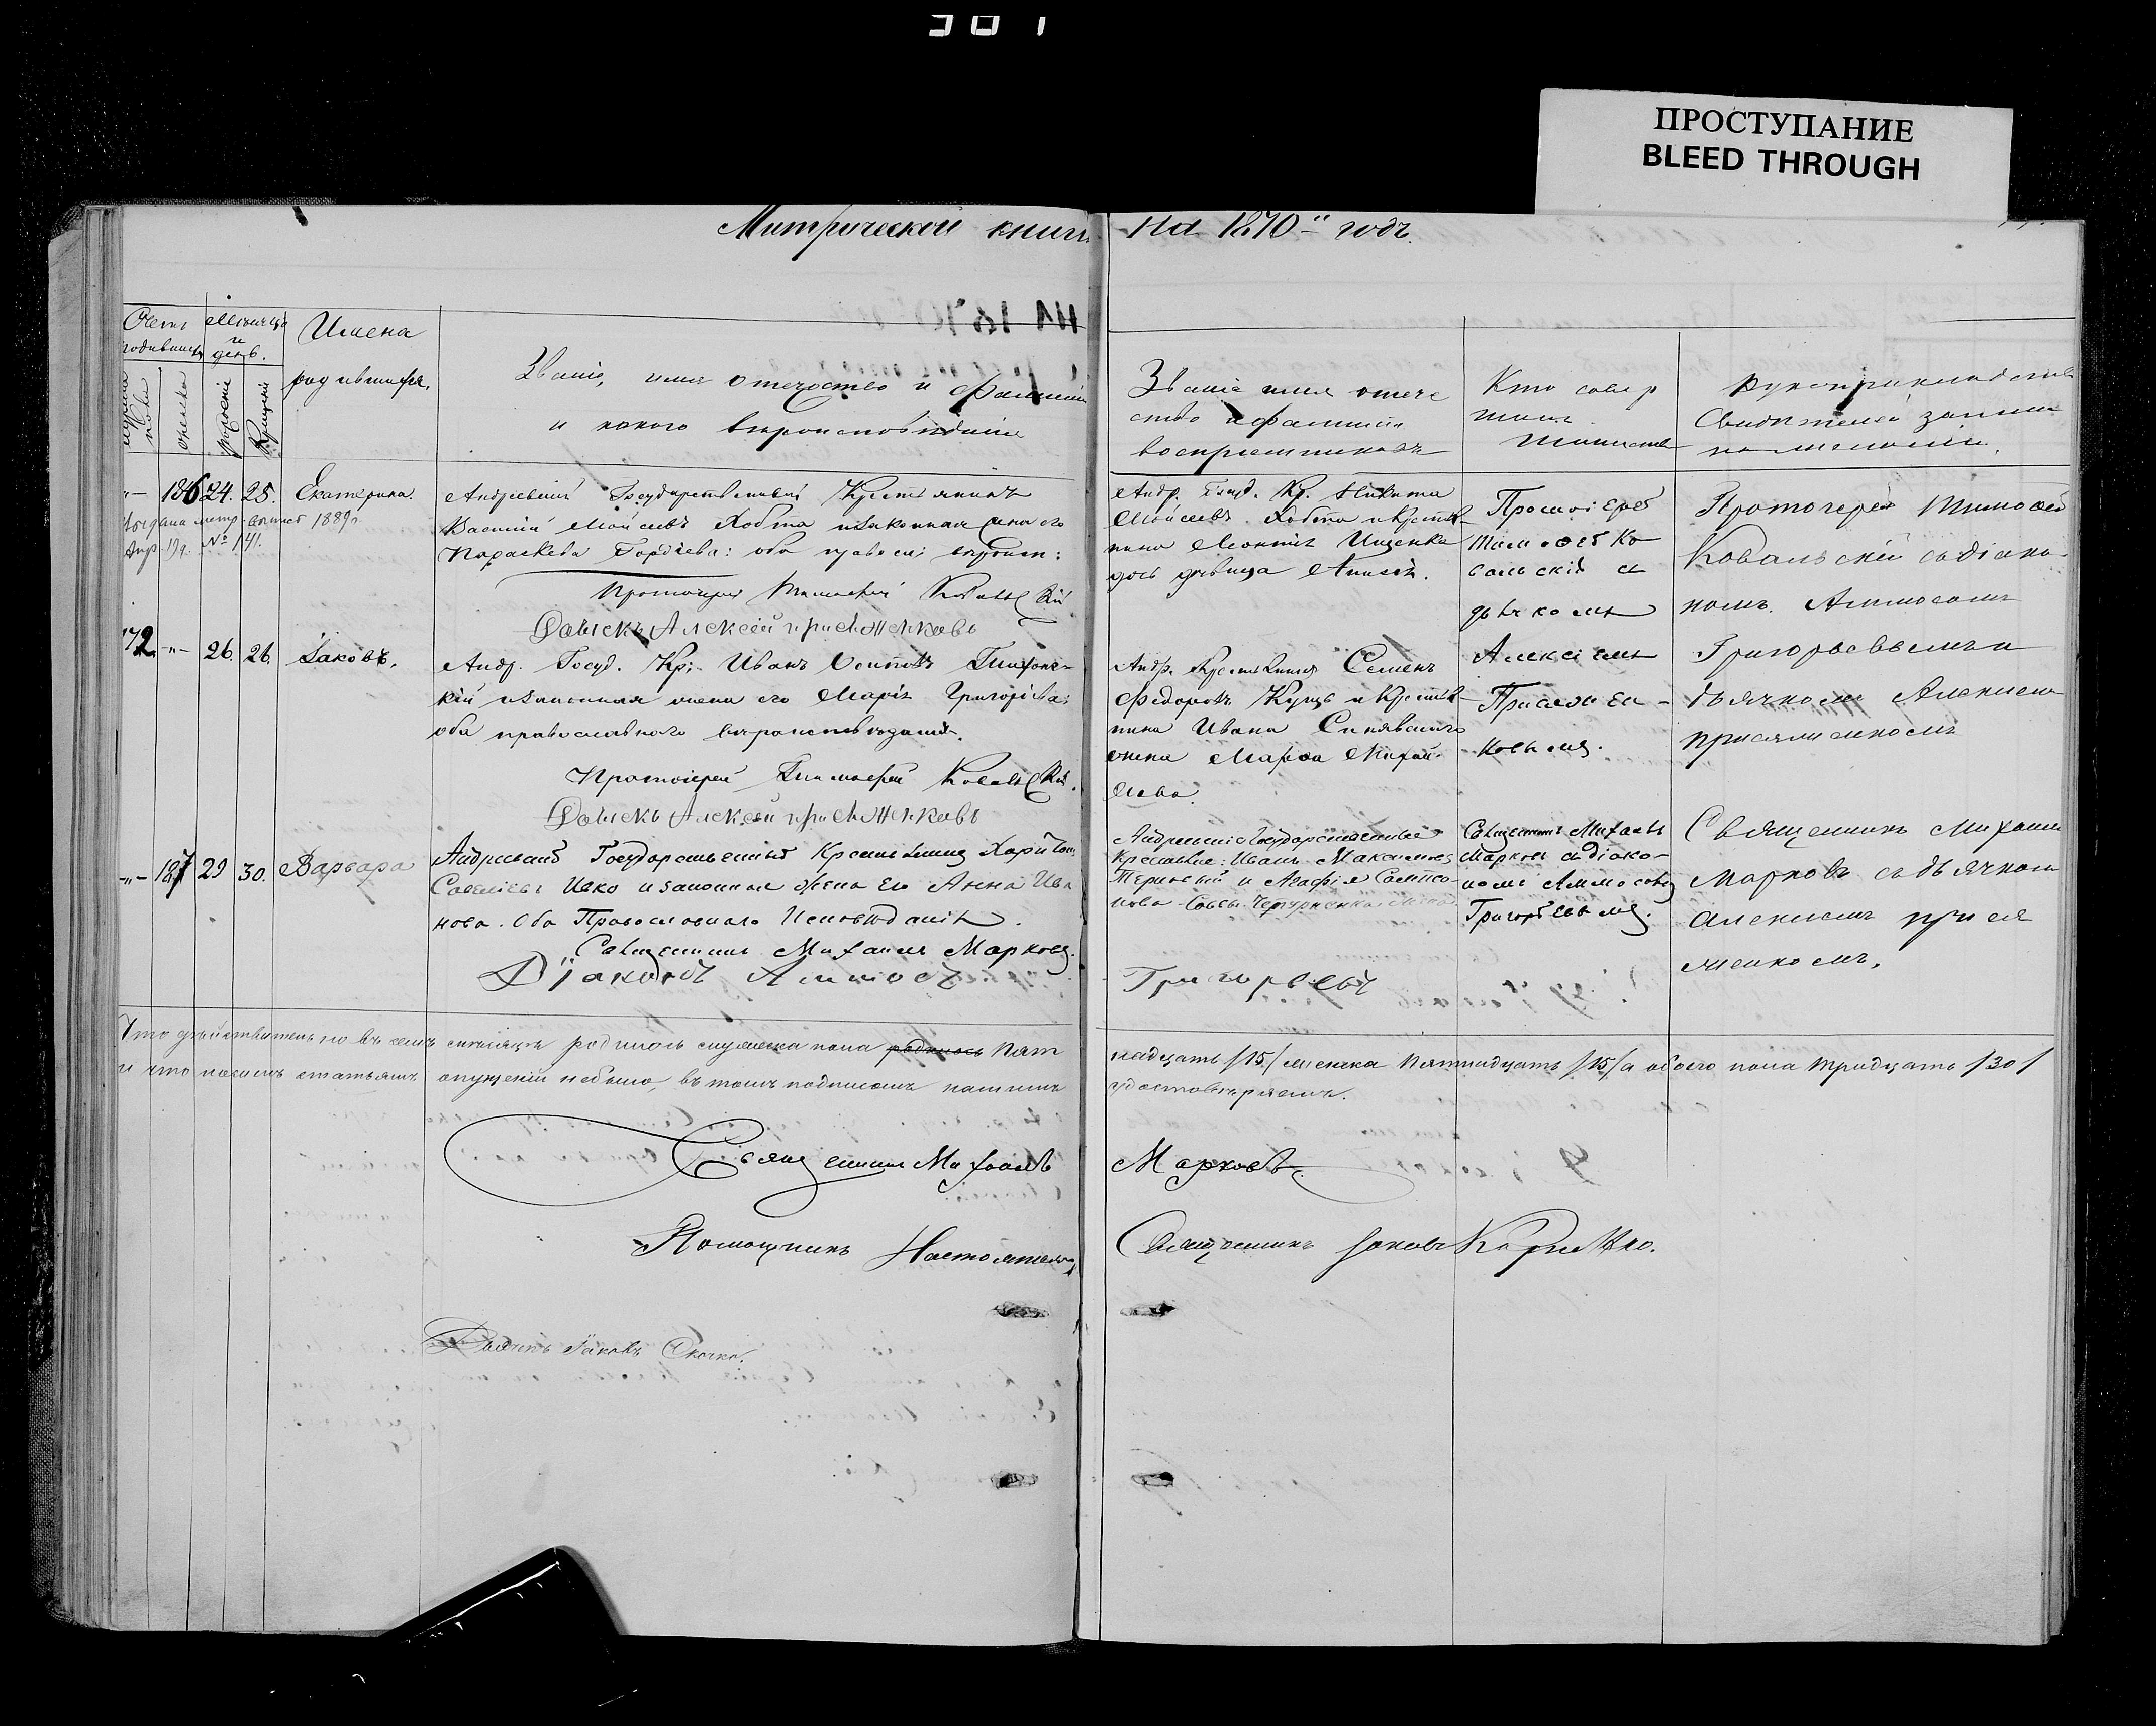 ПРОСТУПАНИЕ
BLEED THROUGH
Митрической книги на 1870 годъ.
Имена
родившихся.
Званіе, имя отечество и фамилія
и какого вероисповѣданія
Званіе имя отече
ство и фамилія
воспріемниковъ
Кто совер
шалъ
таинство
рукоприкладство
свидѣтелей записи
по желанію.
186 24. 25. Екатерина.
№ 141. 1889
Андреевкій Государственный Крестьянинъ
Василій Моѵсеевъ Хобта и законная жена его
Параскева Гордѣева: оба правосл: вѣроисп:
Протоіерей Тимофей Ковальскій
Дьячекъ Алексѣй Присяженковъ
Андр. Госуд. Кр. Никита
Моѵсеевъ Хобта и крестья
нина Леонтія Ищенка
дочь дѣвица
Протоіерей
Тимофей Ко
вальскій съ
дьячкомъ
Алексѣемъ
Присяжен-
ковымъ.
Протоіерей Тимофей
Ковальскій съ діако-
номъ Аммосомъ
Григорьевымъ и
дьячкомъ Алексѣемъ
присяженкомъ
172 -"- 26. 26. Іаковъ.
Андр. Госуд. Кр. Иванъ Осиповъ
кій и законная жена его Марія Григоріева:
оба православного вѣроисповѣданія.
Протоіерей Тимофей Ковальскій.
Дьячекъ Алексѣй Присяженковъ
Андр. Крестьянинъ Семенъ
Федоровъ Куцъ и крестья
нина Ивана Синявскаго
жена Марфа Михай
лова.
-"- 187 29 30. Варвара
Андреевкій Государственный Крестьянинъ Харитонъ
Савеліевъ Ивко и законная жена его Анна Ива
нова. Оба Православнаго Исповѣданія.
Священникъ Михаилъ Марковъ.
Діаконъ Аммосъ Григорьевъ
Андреевкіе Государственные
Крестьяне: Иванъ Максимовъ
и Агафія Сампсо
нова
Священникъ Михаилъ
Марковъ съ діако-
номъ Аммосомъ
Григорьевымъ.
Священникъ Михаилъ
Марковъ съ дьячкомъ
Алексѣемъ прися
женкомъ.
Что дѣйствительно въ семъ мѣсяцѣ родилось мужеска пола родилось пят надцать /15/ женска пятнадцать /15/ а обоего пола тридцать /30/
и что по симъ статьямъ опущеній небыло, въ томъ подписомъ нашимъ удостовѣряемъ.
Священникъ Михаилъ Марковъ.
Помощникъ Настоятеля Священникъ Іаковъ
Дьячекъ Іаковъ